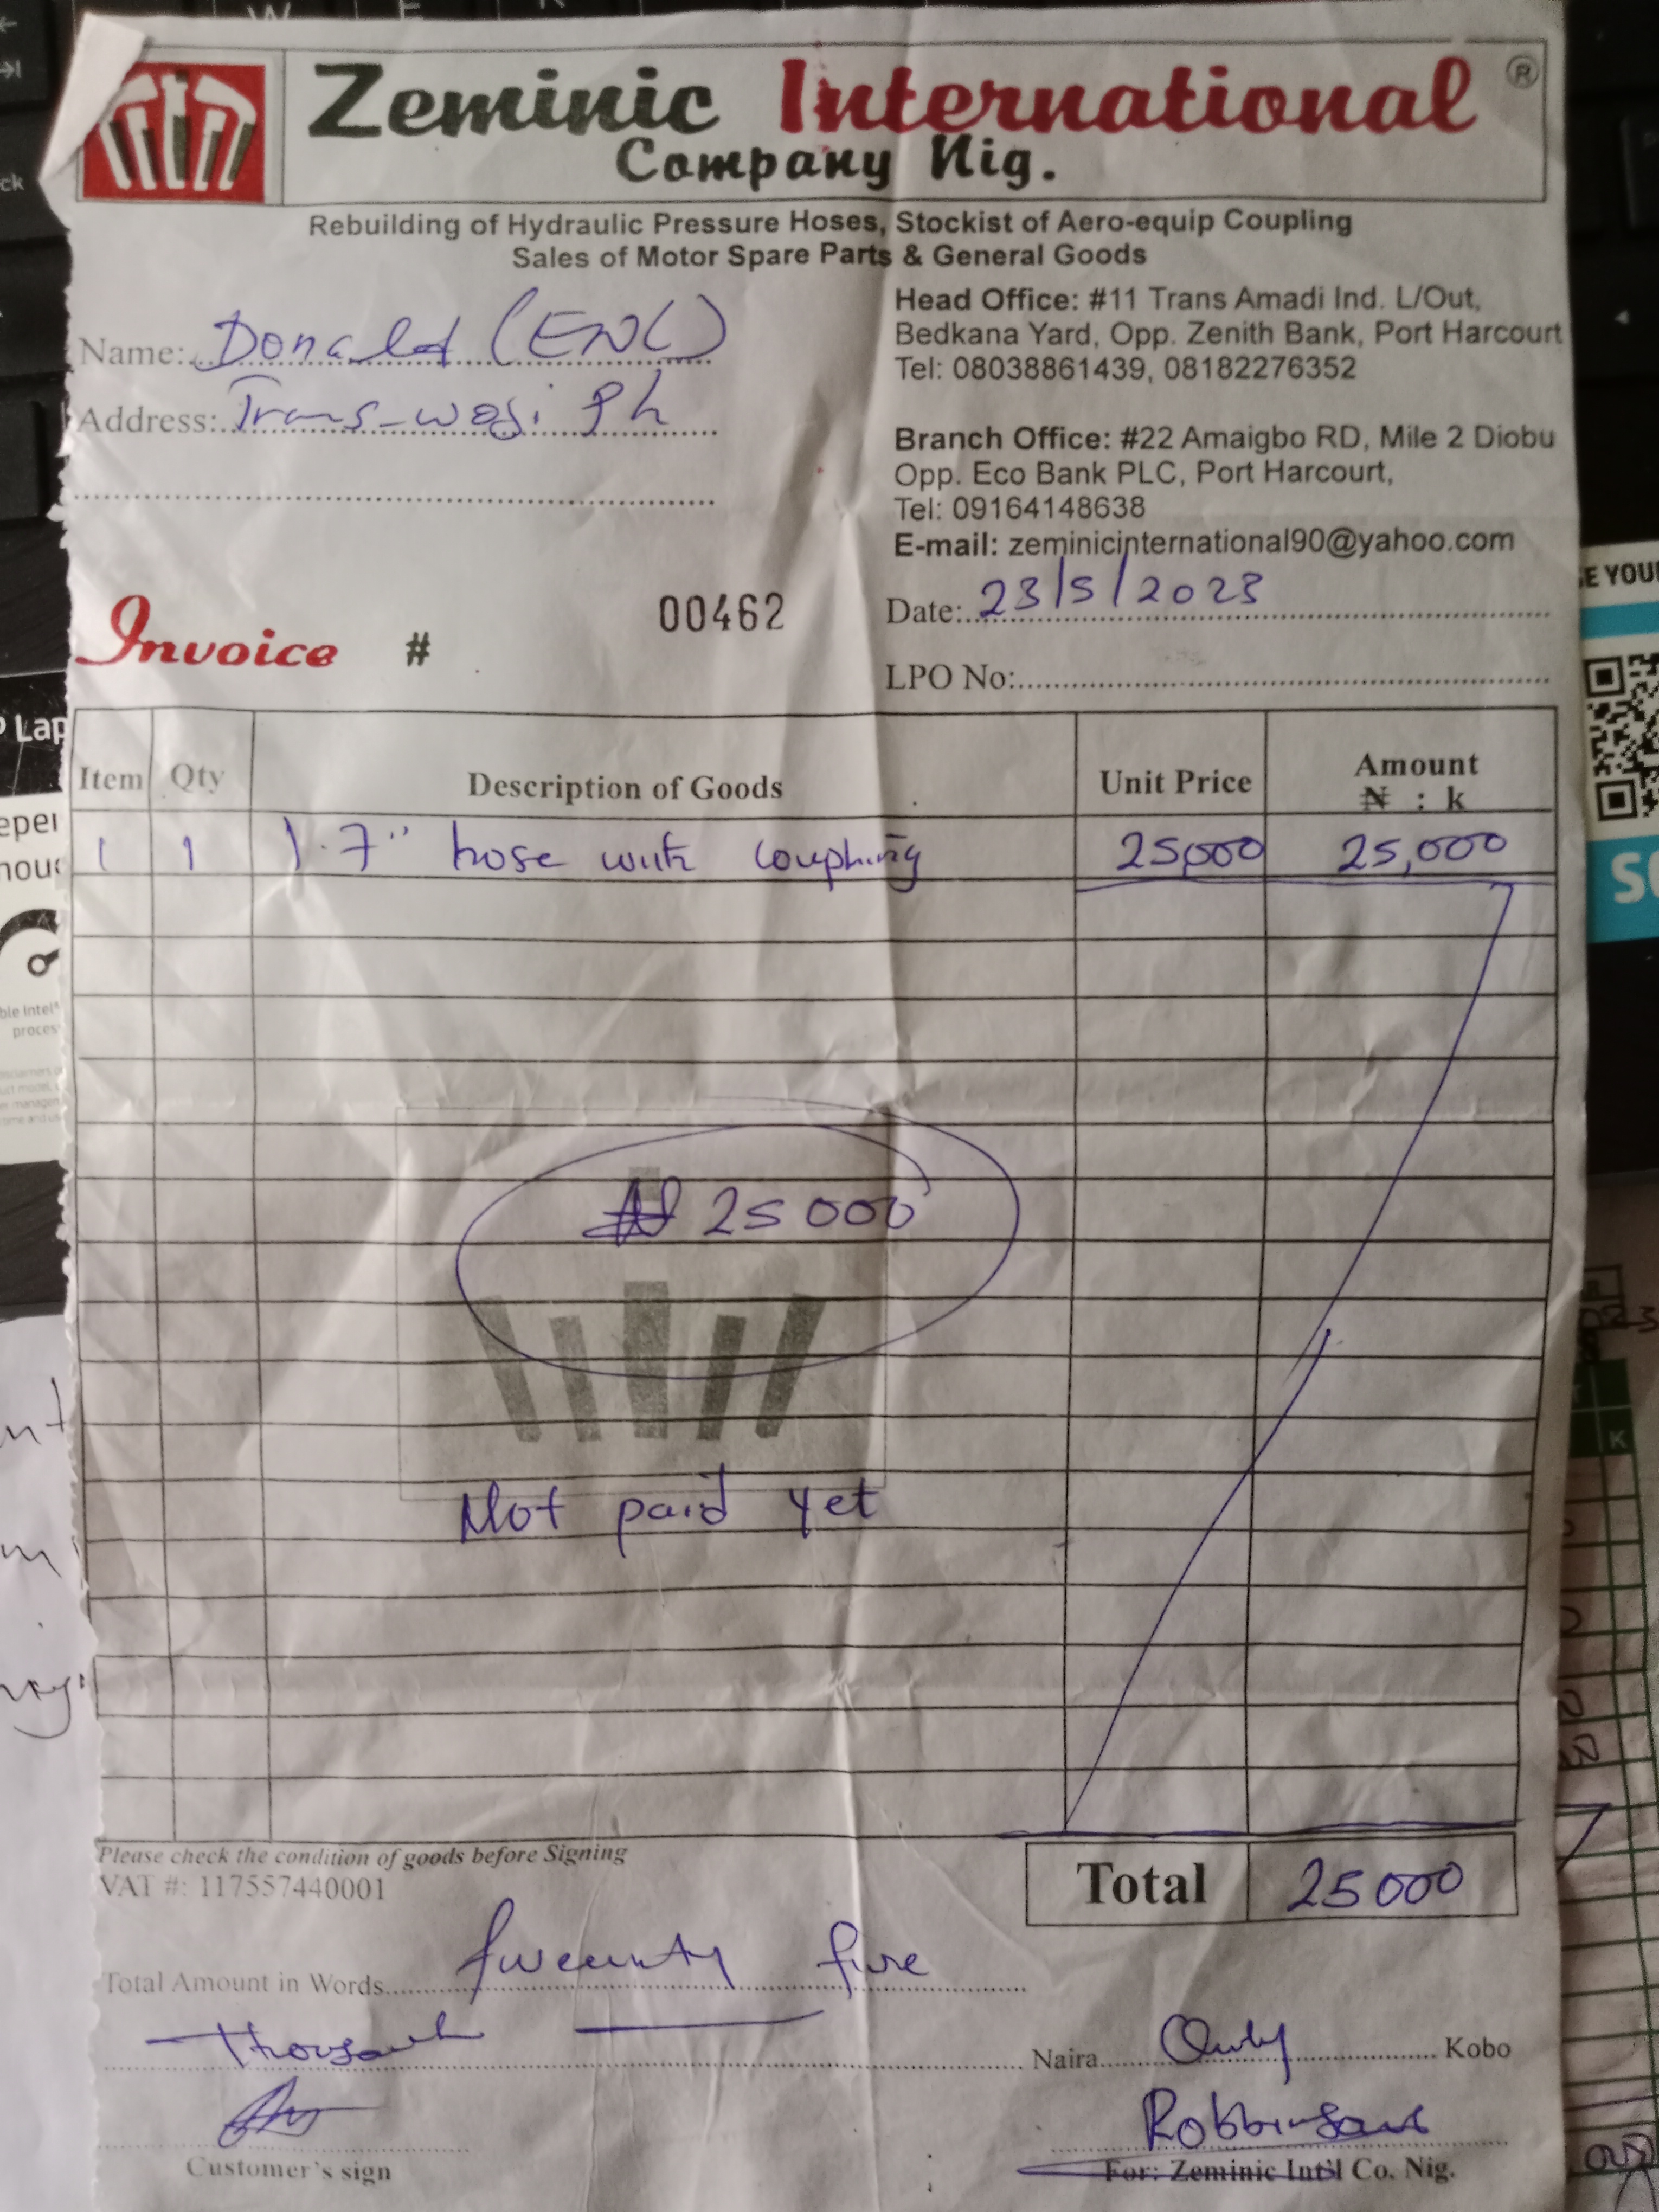 Zeminic International ®
Company Nig.
Rebuilding of Hydraulic Pressure Hoses, Stockist of Aero-equip Coupling
Sales of Motor Spare Parts & General Goods
Name: Donald (ENL)
Address: Trans-woji Ph
Head Office: #11 Trans Amadi Ind. L/Out,
Bedkana Yard, Opp. Zenith Bank, Port Harcourt
Tel: 08038861439, 08182276352
Branch Office: #22 Amaigbo RD, Mile 2 Diobu
Opp. Eco Bank PLC, Port Harcourt,
Tel: 09164148638
E-mail: zeminicinternational90@yahoo.com
Invoice # 00462
Date: 23/5/2023
LPO No:
Item Qty Description of Goods Unit Price Amount
₦ : k
1 1 1.7" hose with couphing 25,000 25,000
₦ 25 000
Not paid yet
Please check the condition of goods before Signing
VAT #: 117557440001
Total 25 000
Total Amount in Words Tweenty five
Thousand Naira Only Kobo
Robbinsons
Customer's sign
For: Zeminic Int'l Co. Nig.